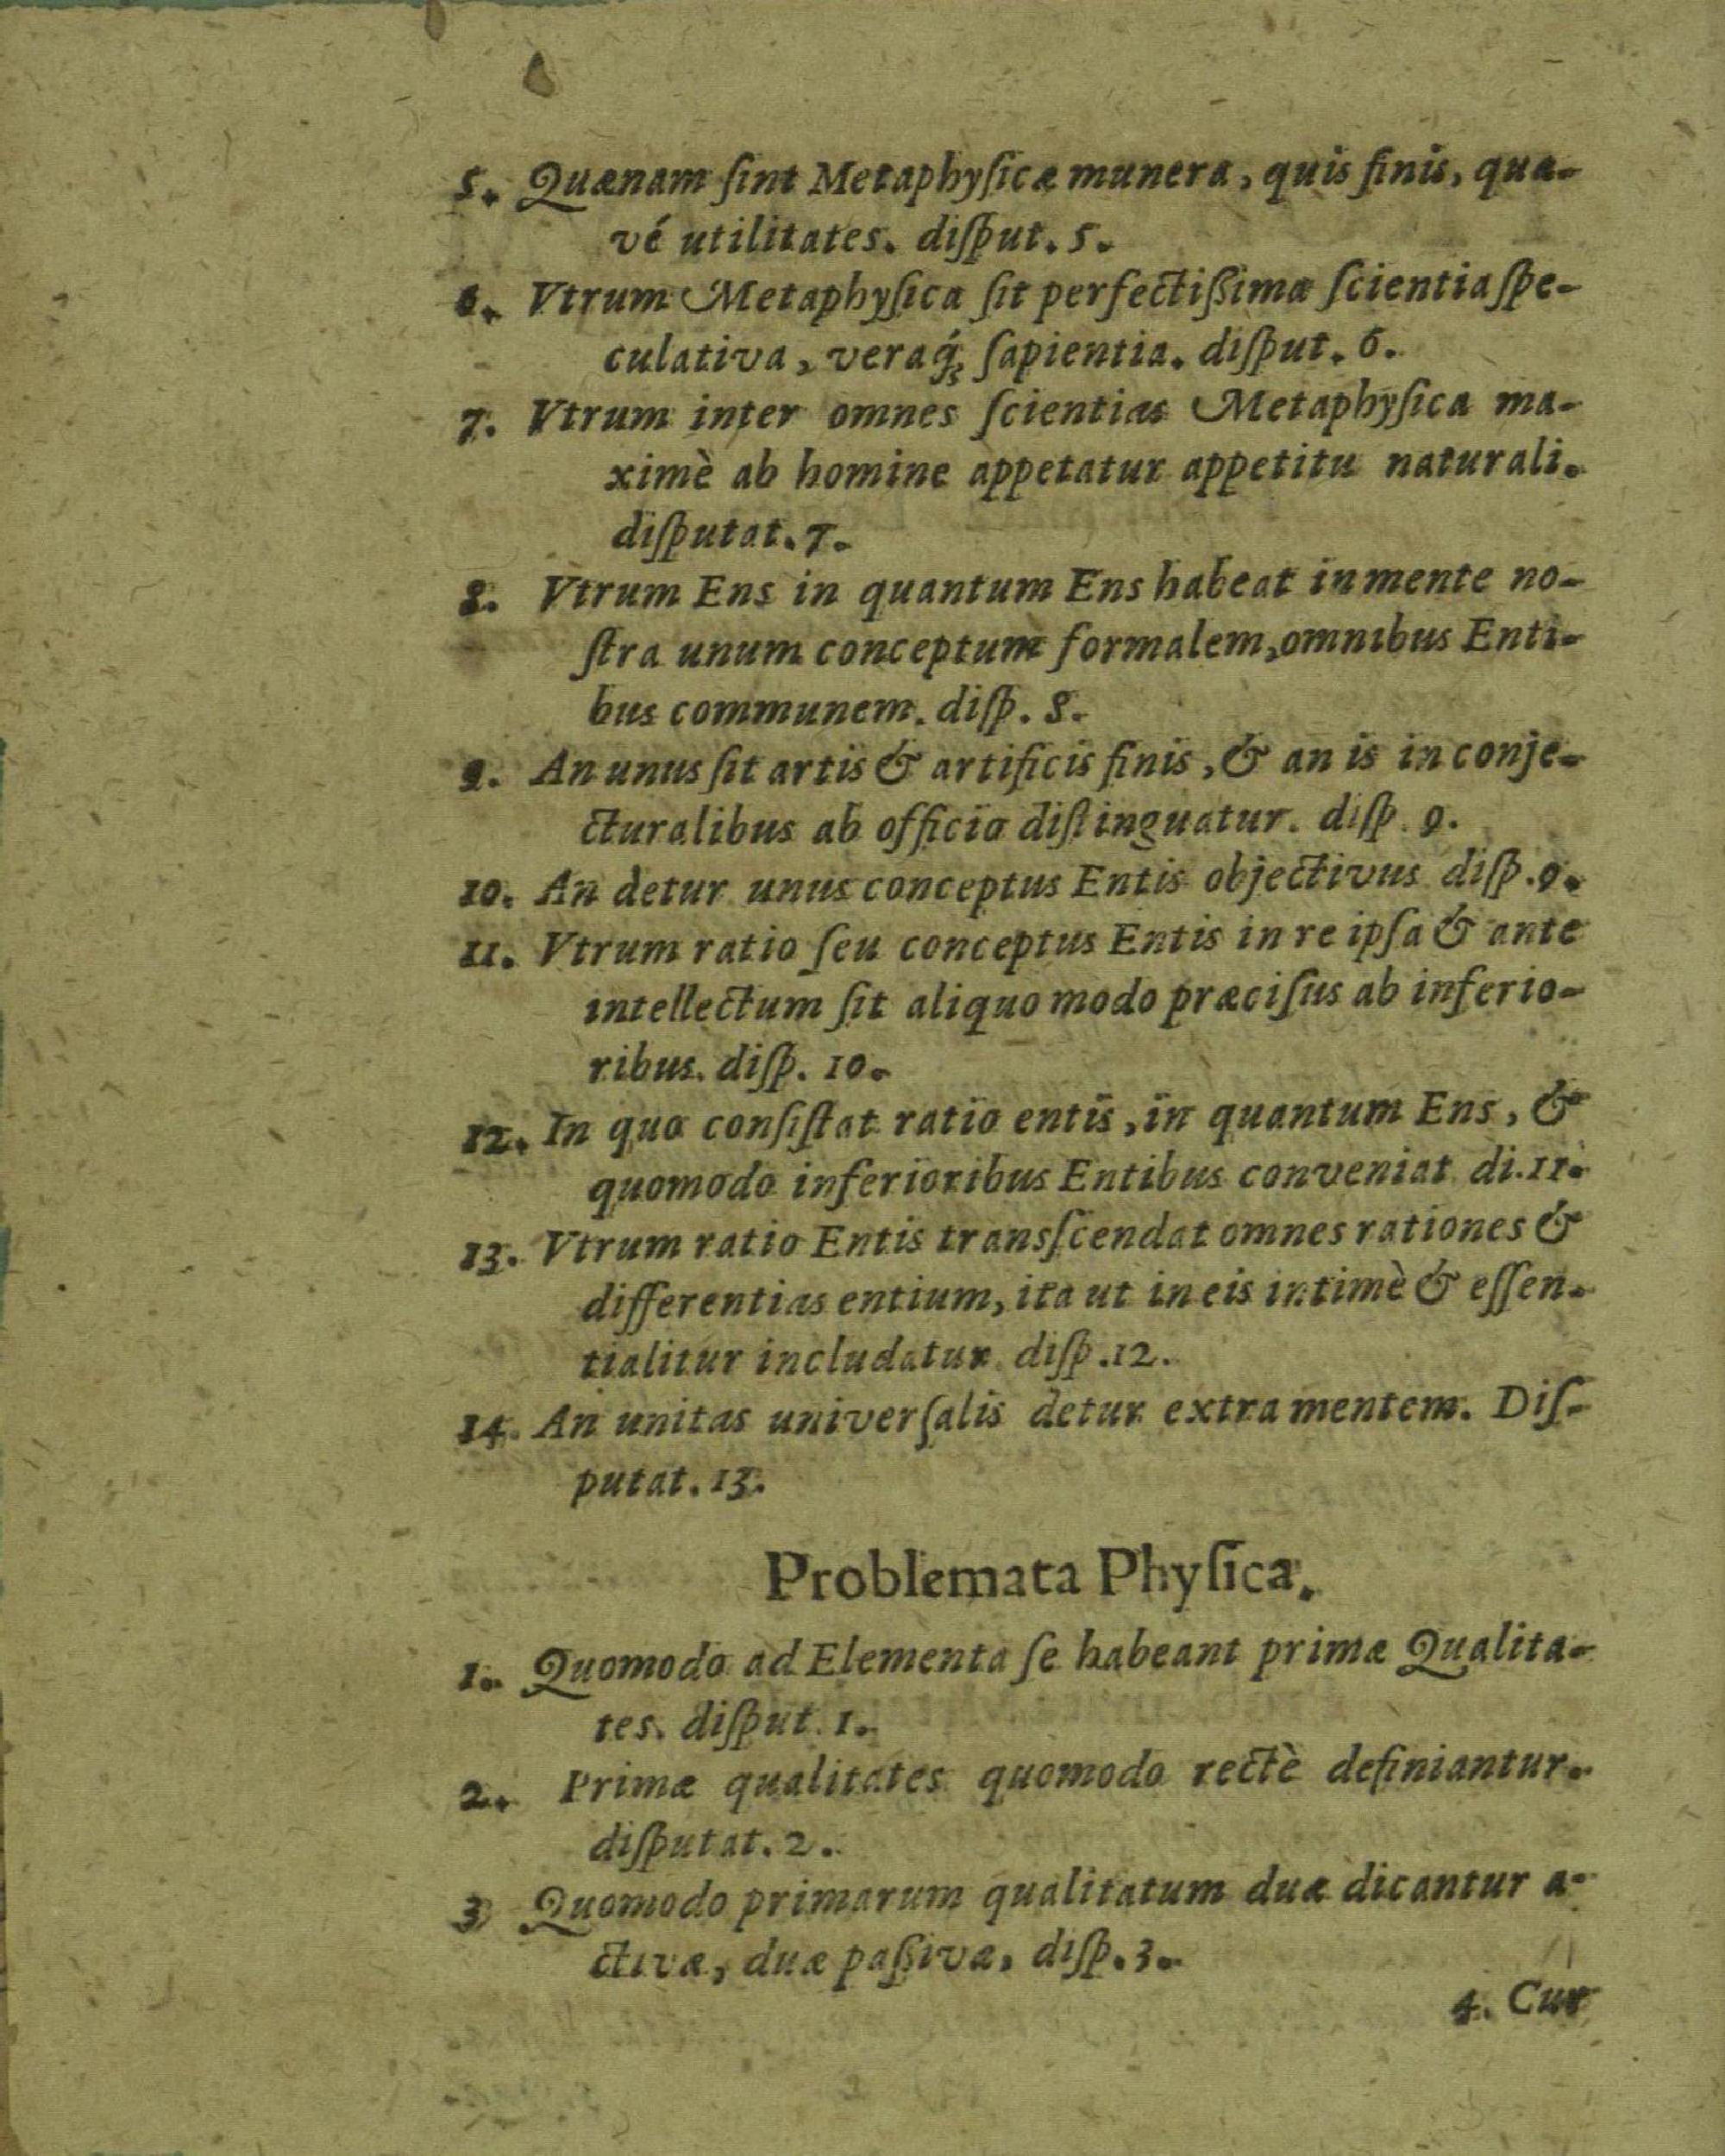 5. Quænam ſint Metaphyſicæ munera, quis finis, quæ-
vé utilitates. diſput. 5.
6. Vtrum Metaphyſica ſit perfectiſsima ſcientia ſpe-
culativa, veraq́ꝫ ſapientia. diſput. 6.
7. Vtrum inter omnes ſcientias Metaphyſica ma-
ximè ab homine appetatur appetitu naturali.
diſputat. 7.
8. Vtrum Ens in quantum Ens habeat in mente no-
ſtra unum conceptum formalem, omnibus Enti-
bus communem. diſp. 8.
9. An unus ſit artis & artificis finis, & an is in conje-
cturalibus ab officio diſtinguatur. diſp. 9.
10. An detur unus conceptus Entis objectivus diſp. 9.
11. Vtrum ratio ſeu conceptus Entis in re ipſa & ante
intellectum ſit aliquo modo præciſus ab inferio-
ribus. diſp. 10.
12. In quo conſiſtat ratio entis, in quantum Ens, &
quomodo inferioribus Entibus conveniat di. 11.
13. Vtrum ratio Entis transſcendat omnes rationes &
differentias entium, ita ut in eis intimè & eſſen-
tialitur includatur. diſp. 12.
14. An unitas univerſalis detur extra mentem. Diſ-
putat. 13.
Problemata Phyſica.
1. Quomodo ad Elementa ſe habeant primæ Qualita-
tes. diſput. 1.
2. Primæ qualitates quomodo rectè definiantur.
diſputat. 2.
3 Quomodo primarum qualitatum duæ dicantur a-
ctivæ, duæ paſsivæ, diſp. 3.
4. Cur